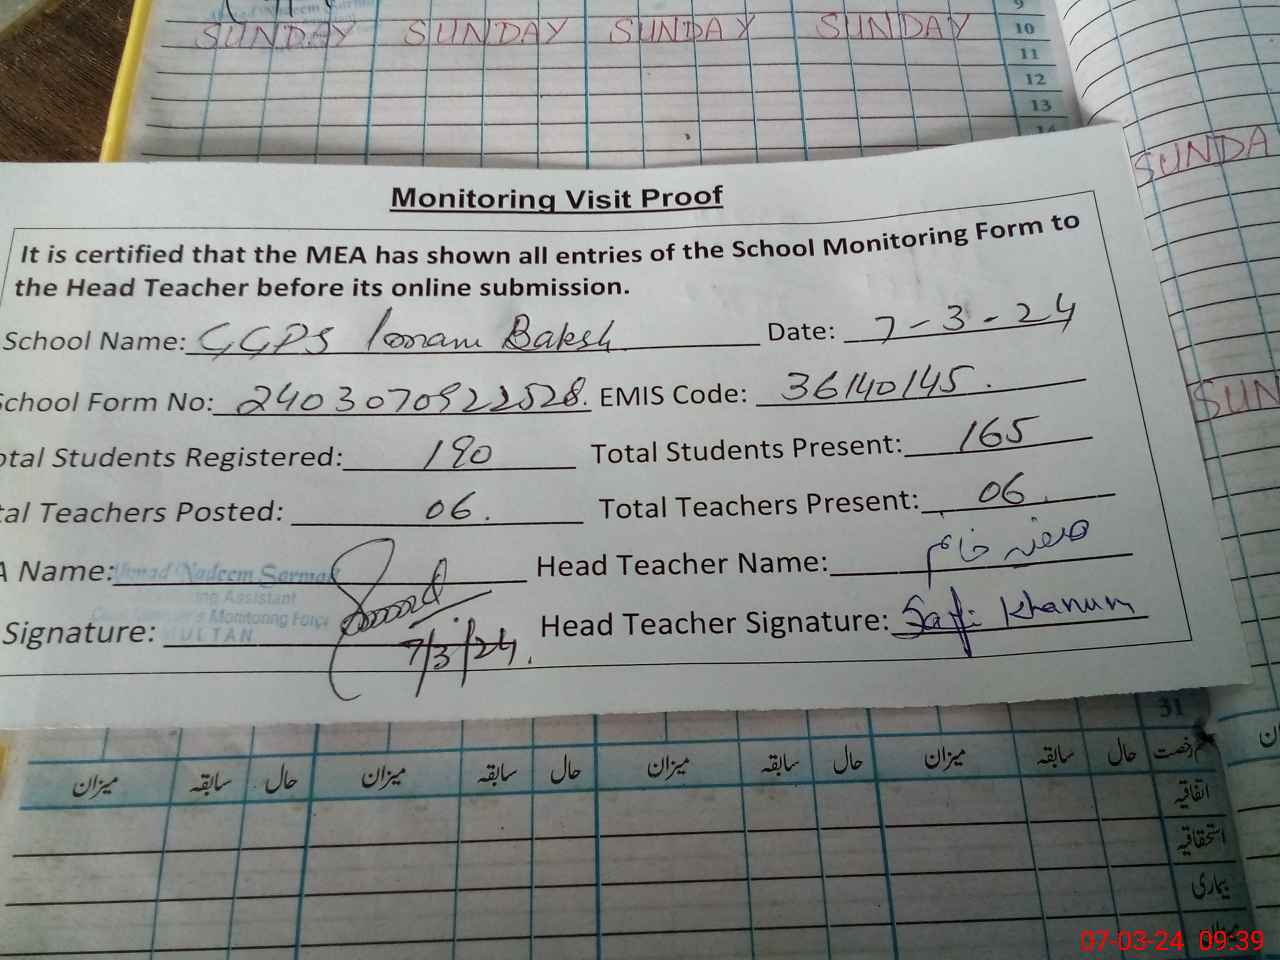 9
SUNDAY SUNDAY SUNDAY SUNDAY 10
11
12
13
SUNDA
Monitoring Visit Proof
It is certified that the MEA has shown all entries of the School Monitoring Form to
the Head Teacher before its online submission.
School Name: GGPS Imam Baksh Date: 7-3-24
SUN
School Form No: 2403070922528. EMIS Code: 36140145.
otal Students Registered: 190 Total Students Present: 165
tal Teachers Posted: 06. Total Teachers Present: 06.
A Name: Nadeem Sarmad Head Teacher Name:
Assistant
Monitoring Force
Signature: MULTAN Head Teacher Signature: Safi Khanum
7/3/24.
31
میزان سابقہ حال میزان سابقہ حال میزان سابقہ حال میزان سابقہ حال قسم رخصت
اتفاقیہ
استحقاقیہ
بیماری
07-03-24 09:39